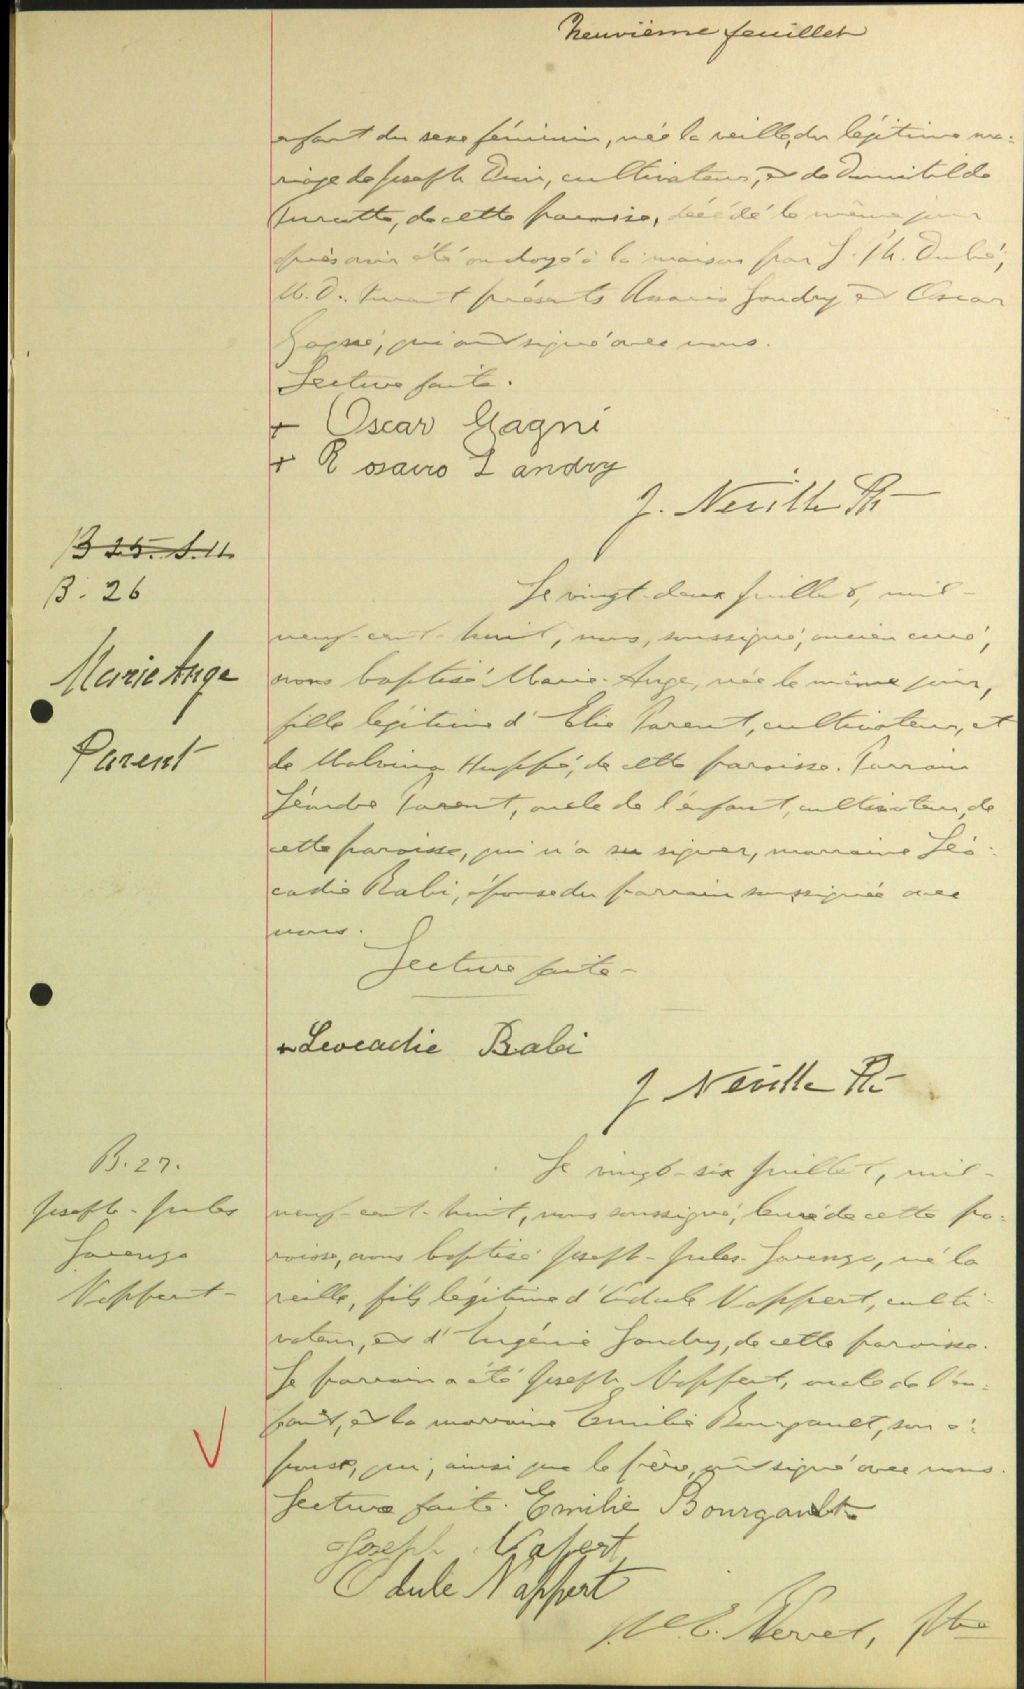 Neuvième feuillet
enfant du sexe féminin, née la veille, du légitime ma-
riage de Joseph, cultivateur, et de Domitilde
Turcotte, de cette paroisse, décédé le même jour
après avoir été ondoyé à la maison par J. Ph. Dubé,
M.D., étant présents Rosario Landry et Oscar
Gagné, qui ont signé avec nous.
Lecture faite.
+ Oscar Gagné
+ Rosairo Landry
J. Neville Ptr
B 25. S. 11
B. 26
Marie Ange
Parent
Le vingt-deux juillet, mil-
neuf-cent-huit, nous, soussigné, ancien curé,
avons baptisé Marie-Ange, née le même jour,
fille légitime d'Elie Parent, cultivateur, et
de Malvina Huppé, de cette paroisse. Parrain
Léandre Parent, oncle de l'enfant, cultivateur, de
cette paroisse, qui n'a su signer, marraine Léo-
cadie Babi, épouse du parrain soussignée avec
nous.
Lecture faite -
+ Leocadie Babi
J Neville Ptr
B. 27.
Joseph-Jules
Lorenzo
Nappert-
Le vingt-six juillet, mil-
neuf-cent-huit, nous soussigné, curé de cette pa-
roisse, avons baptisé Joseph-Jules-Lorenzo, né la
veille, fils légitime d'Odule Nappert, culti-
vateur, et d'Eugénie Landry, de cette paroisse.
Le parrain a été Joseph Nappert, oncle de l'en-
fant, et la marraine Emilie Bourgault, son é-
pouse, qui, ainsi que le père, ont signé avec nous.
Lecture faite. Emilie Bourgault
Joseph Napert
Odule Nappert
Ptre